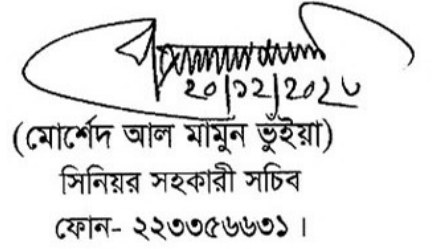 ২০|১২|২০২৫
(মোর্শেদ আল মামুন ভুঁইয়া)
সিনিয়র সহকারী সচিব
ফোন- ২২৩৩৫৬৬৩১ ।